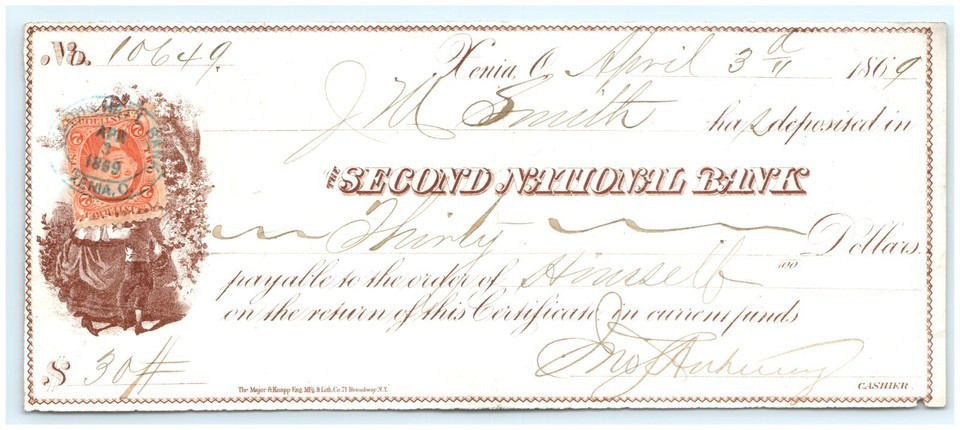 No. 10649.
Xenia, O. April 3d 1869
J M Smith has deposited in
THE SECOND NATIONAL BANK
Thirty Dollars.
100
payable to the order of Himself
on the return of this Certificate in current funds
$ 30
CASHIER.
The Major & Knapp Eng. Mfg. & Lith. Co. 71 Broadway N.Y.
APR
3
1869
XENIA, O.
2
2
2